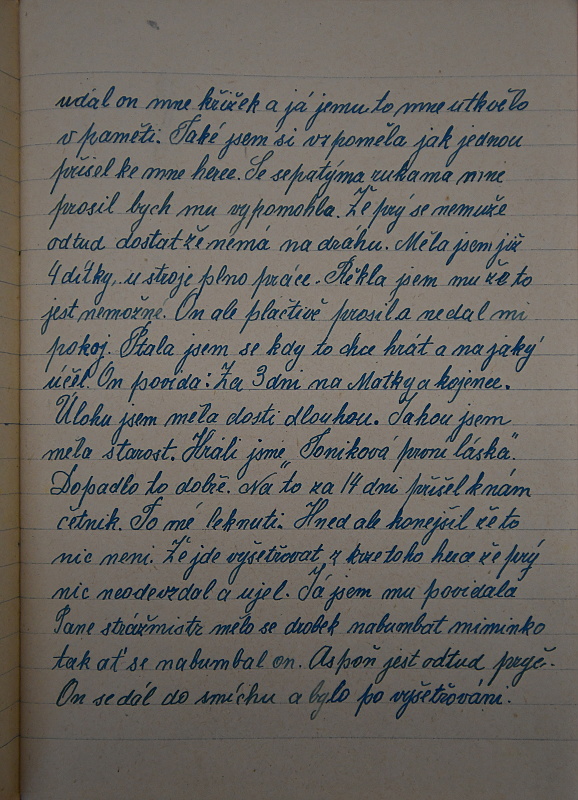 udal on mne křížek a já jemu to mne utkvělo
v paměti. Také jsem si vzpoměla jak jednou
přišel ke mne herec. Se sepatýma rukama mne
prosil bych mu vypomohla. Že prý se nemuže
odtud dostat že nemá na dráhu. Měla jsem již
4 dítky, u stroje plno práce. Řěkla jsem mu že to
jest nemožné. On ale plačtivě prosil a nedal mi
pokoj. Ptala jsem se kdy to chce hrát a na jaký
účel. On povída: Za 3 dni na Matky a kojence.
Úlohu jsem měla dosti dlouhou. Takou jsem
měla starost. Hráli jsme „Toniková první láska".
Dopadlo to dobře. Na to za 14 dni přišel k nám
četnik. To mé leknuti. Hned ale konejšil že to
nic neni. Že jde vyšetřovat z kvze toho herce že prý
nic neodevzdal a ujel. Já jsem mu povidala
Pane strážmistr mělo se drobek nabumbat miminko
tak ať se nabumbal on. Aspoň jest odtud pryč.
On se dál do smíchu a bylo po vyšetřováni.